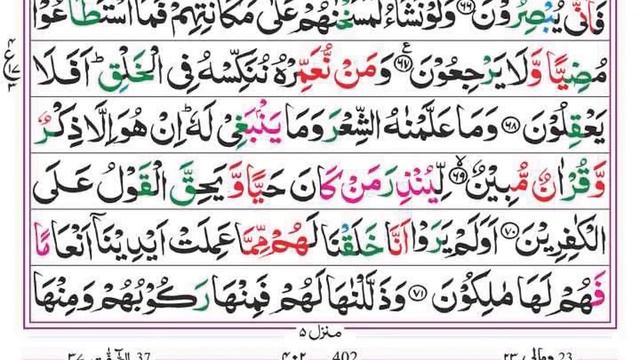 فَاَنّٰى یُبْصِرُوْنَ ۝۶۶ وَلَوْ نَشَآءُ لَمَسَخْنٰهُمْ عَلٰى مَكَانَتِهِمْ فَمَا اسْتَطَاعُوْا
مُضِیًّا وَّلَا یَرْجِعُوْنَ ۝۶۷ وَمَنْ نُّعَمِّرْهُ نُنَكِّسْهُ فِى الْخَلْقِ ؕ اَفَلَا
یَعْقِلُوْنَ ۝۶۸ وَمَا عَلَّمْنٰهُ الشِّعْرَ وَمَا یَنْۢبَغِیْ لَهٗ ؕ اِنْ هُوَ اِلَّا ذِكْرٌ
وَّقُرْاٰنٌ مُّبِیْنٌ ۝۶۹ لِّیُنْذِرَ مَنْ كَانَ حَیًّا وَّیَحِقَّ الْقَوْلُ عَلَى
الْكٰفِرِیْنَ ۝۷۰ اَوَلَمْ یَرَوْا اَنَّا خَلَقْنَا لَهُمْ مِّمَّا عَمِلَتْ اَیْدِیْنَاۤ اَنْعَامًا
فَهُمْ لَهَا مٰلِكُوْنَ ۝۷۱ وَذَلَّلْنٰهَا لَهُمْ فَمِنْهَا رَكُوْبُهُمْ وَمِنْهَا
منزل ۵
402 ۴۰۲